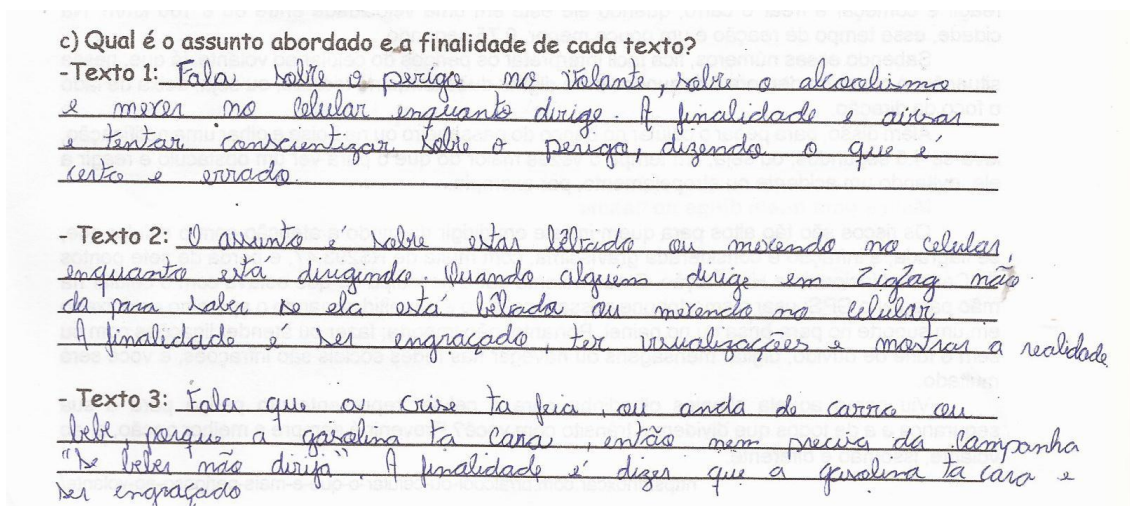 c) Qual é o assunto abordado e a finalidade de cada texto?
-Texto 1: Fala sobre o perigo no volante, sobre o alcoolismo
e mexer no celular enquanto dirige. A finalidade e avisar
e tentar conscientizar sobre o perigo, dizendo o que é
certo e errado.
- Texto 2: O assunto é sobre estar bêbado ou mexendo no celular
enquanto está dirigindo. Quando alguem dirige em ZigZag não
da para saber se ela está bêbada ou mexendo no celular.
A finalidade e ser engraçado, ter visualizações e mostrar a realidade
- Texto 3: Fala que a crise ta feia, ou anda de carro ou
bebe porque a gasolina ta cara, então nem precisa da campanha
"Se beber não dirija" A finalidade é dizer que a gasolina ta cara e
ser engraçado